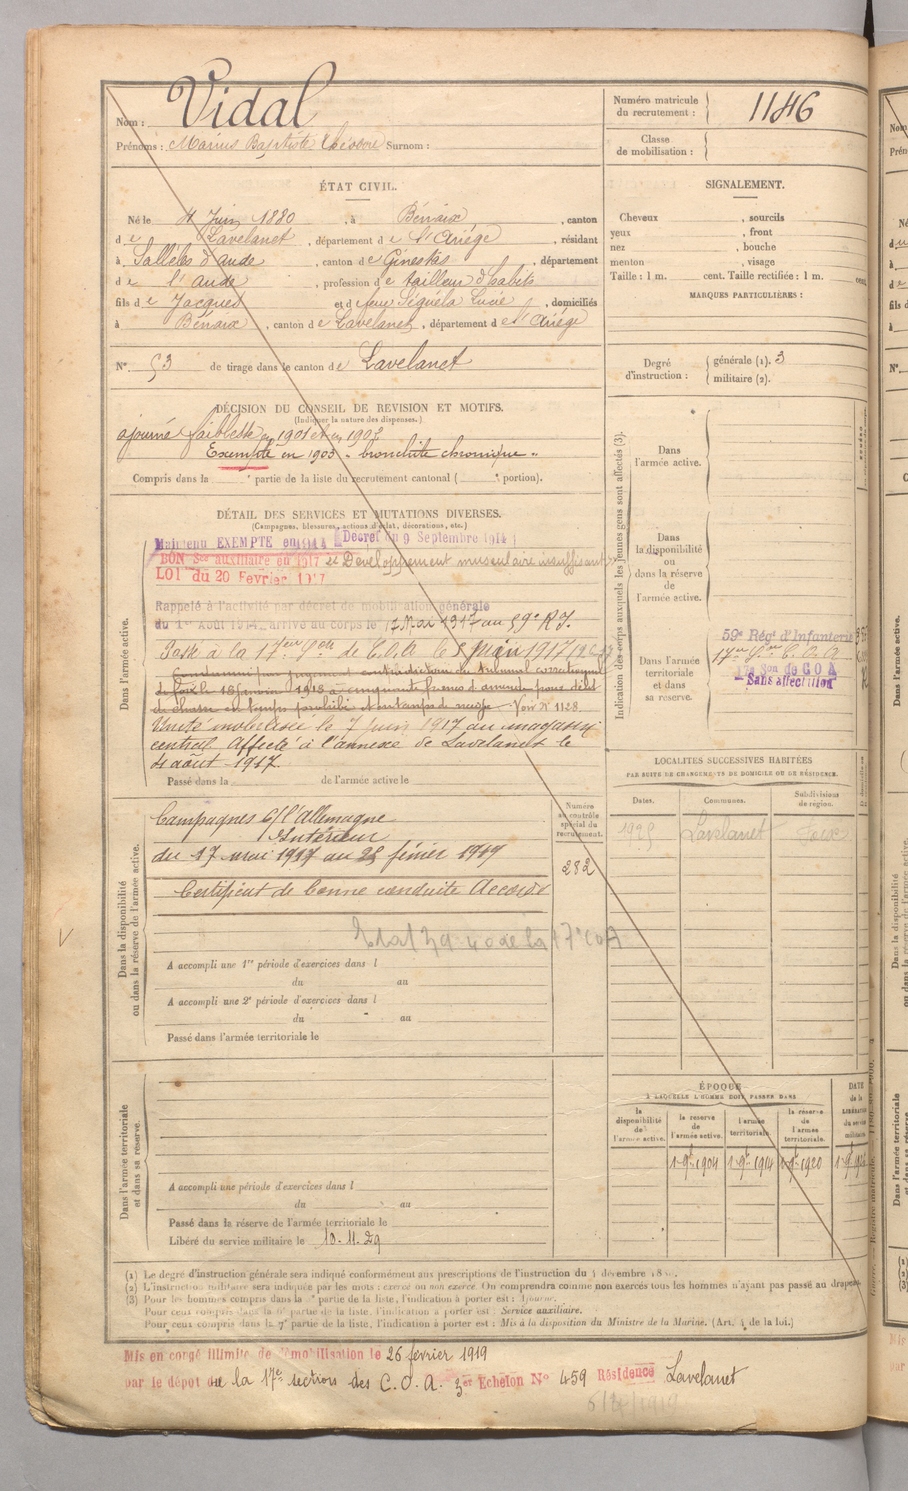 Nom : Vidal
Prénoms : Marius Baptiste Théodore Surnom :
Numéro matricule du recrutement : 1146
Classe de mobilisation :
ÉTAT CIVIL.
Né le 4 Juin 1880, à Bénaix, canton
de Lavelanet, département de l'Ariège, résidant
à Sallèles d'Aude, canton de Ginestas, département
de l'Aude, profession de tailleur d'habits
fils de Jacques et de feue Séguéla Lucie, domiciliés
à Bénaix, canton de Lavelanet, département de l'Ariège
N° 53 de tirage dans le canton de Lavelanet
SIGNALEMENT.
Cheveux , sourcils
yeux , front
nez , bouche
menton , visage
Taille : 1 m. cent. Taille rectifiée : 1 m. cent.
MARQUES PARTICULIÈRES :
Degré d'instruction : générale (1). 3
militaire (2).
DÉCISION DU CONSEIL DE REVISION ET MOTIFS.
(Indiquer la nature des dispenses.)
ajourné faiblesse en 1901 et en 1902
Exempté en 1903 - bronchite chronique "
Compris dans la partie de la liste du recrutement cantonal ( portion).
DÉTAIL DES SERVICES ET MUTATIONS DIVERSES.
(Campagnes, blessures, actions d'éclat, décorations, etc.)
Dans l'armée active.
Maintenu EXEMPTE en 1914 Décret du 9 Septembre 1914
BON Sce auxiliaire en 1917 Développement musculaire insuffisant
LOI du 20 Fevrier 1917
Rappelé à l'activité par décret de mobilisation générale
du 1er Août 1914, arrivé au corps le 17 Mai 1917 au 59e R.I.
Passé à la 17eme Son de C.O.A. le 8 Juin 1917
Condamné par jugement contradictoire du tribunal correctionnel
de Foix le 18 janvier 1918 à cinquante francs d'amende pour délit
de chasse en temps prohibé et en temps de neige. Voir N° 1128.
Unité mobilisée le 7 Juin 1917 au magasin
central Affecté à l'annexe de Lavelanet le
4 août 1917.
Passé dans la de l'armée active le
Indication des corps auxquels les jeunes gens sont affectés (3).
Dans l'armée active.
Dans la disponibilité ou dans la réserve de l'armée active.
Dans l'armée territoriale et dans sa réserve.
59e Rég' d'Infanterie
17eme Son C.O.A
17e Son de C O A
Sans affectation
LOCALITÉS SUCCESSIVES HABITÉES
PAR SUITE DE CHANGEMENTS DE DOMICILE OU DE RÉSIDENCE.
Dates. Communes. Subdivisions de région.
1925 Lavelanet Foix
Dans la disponibilité ou dans la réserve de l'armée active.
Numéro au contrôle spécial du recrutement.
282
Campagnes C/ l'Allemagne
Intérieur
du 17 mai 1917 au 25 février 1919
Certificat de bonne conduite Accordé
A accompli une 1re période d'exercices dans l
du au
A accompli une 2e période d'exercices dans l
du au
Passé dans l'armée territoriale le
Dans l'armée territoriale et dans sa réserve.
A accompli une période d'exercices dans l
du au
Passé dans la réserve de l'armée territoriale le
Libéré du service militaire le 10.11.29
ÉPOQUE
À LAQUELLE L'HOMME DOIT PASSER DANS
la disponibilité de l'armée active.
la réserve de l'armée active.
l'armée territoriale.
la réserve de l'armée territoriale.
DATE de la LIBÉRATION du service militaire.
1-9e-1904 1-9e-1914 1-9e-1920
(1) Le degré d'instruction générale sera indiqué conformément aux prescriptions de l'instruction du 4 décembre
(2) L'instruction militaire sera indiquée par les mots : exercé ou non exercé. On comprendra comme non exercés tous les hommes n'ayant pas passé au drapeau.
(3) Pour les hommes compris dans la partie de la liste, l'indication à porter est : Ajourné.
Pour ceux compris dans la 6e partie de la liste, l'indication à porter est : Service auxiliaire.
Pour ceux compris dans la 7e partie de la liste, l'indication à porter est : Mis à la disposition du Ministre de la Marine. (Art. 4 de la loi.)
Mis en congé illimité de démobilisation le 26 février 1919
par le dépôt de la 17e section des C.O.A. 3er Echelon N° 459 Résidence Lavelanet